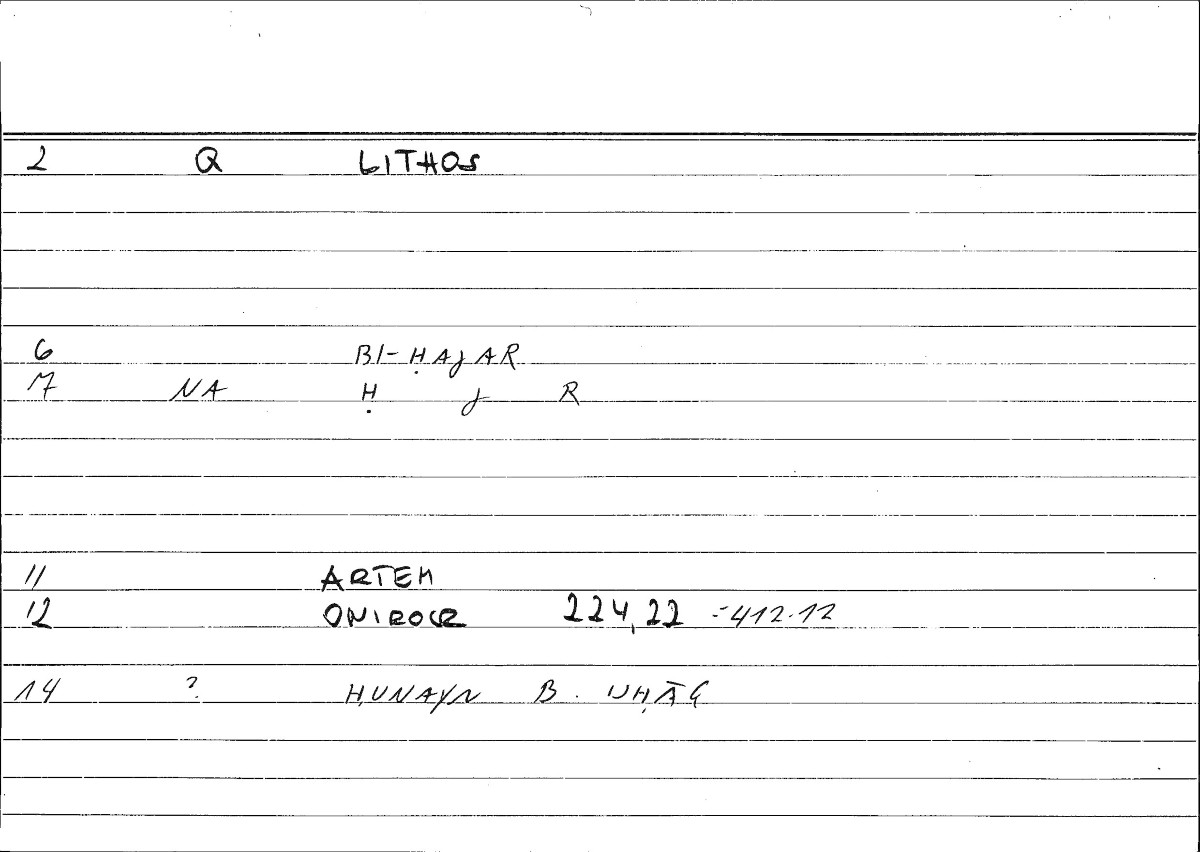 2 Q LITHOS
6 BI-ḤAJAR
7 NA Ḥ J R
11 ARTEM
12 ONIROCR 224,22 =412.12
14 ? ḤUNAYN B.